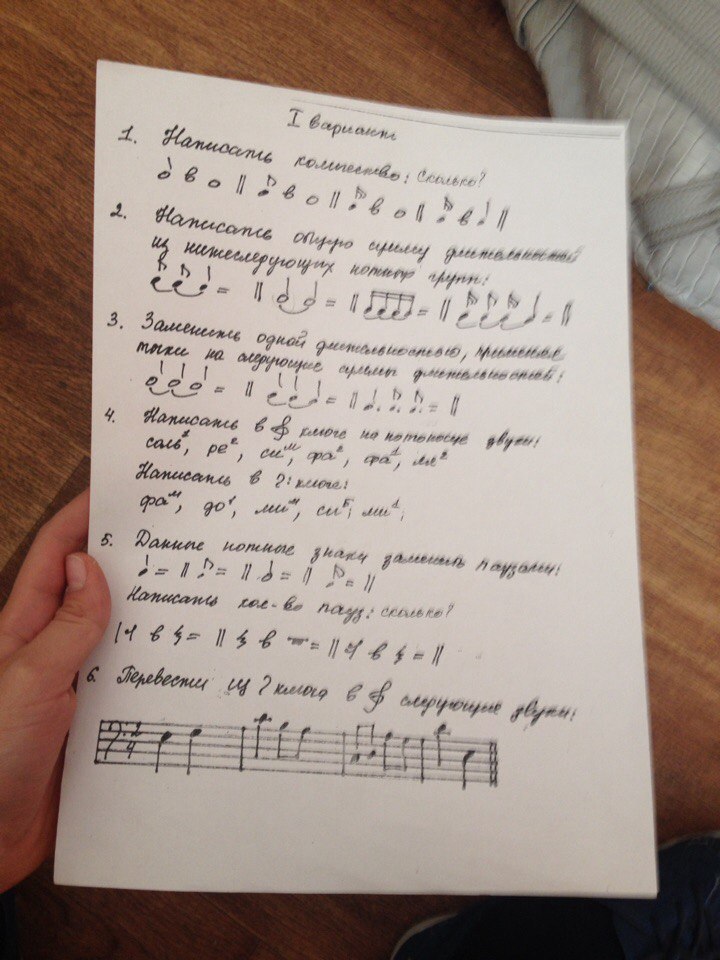 I вариант
1. Написать количество: сколько?
в || в || в || в ||
2. Написать общую сумму длительностей
из нижеследующих нотных групп:
= || = || = || = ||
3. Заменить одной длительностью, применяя
точки на следующие суммы длительностей:
= || = || = ||
4. Написать в ключе на нотоносце звуки:
соль¹, ре², си ᵐ, фа², фа¹, ля²
Написать в ключе:
фа ᵐ, до¹, ми ᵐ, си ᴮ, ми¹,
5. Данные нотные знаки заменить паузами:
= || = || = || = ||
Написать кол-во пауз: сколько?
в = || в = || в = ||
6. Перевести из ключа в следующие звуки:
2
4